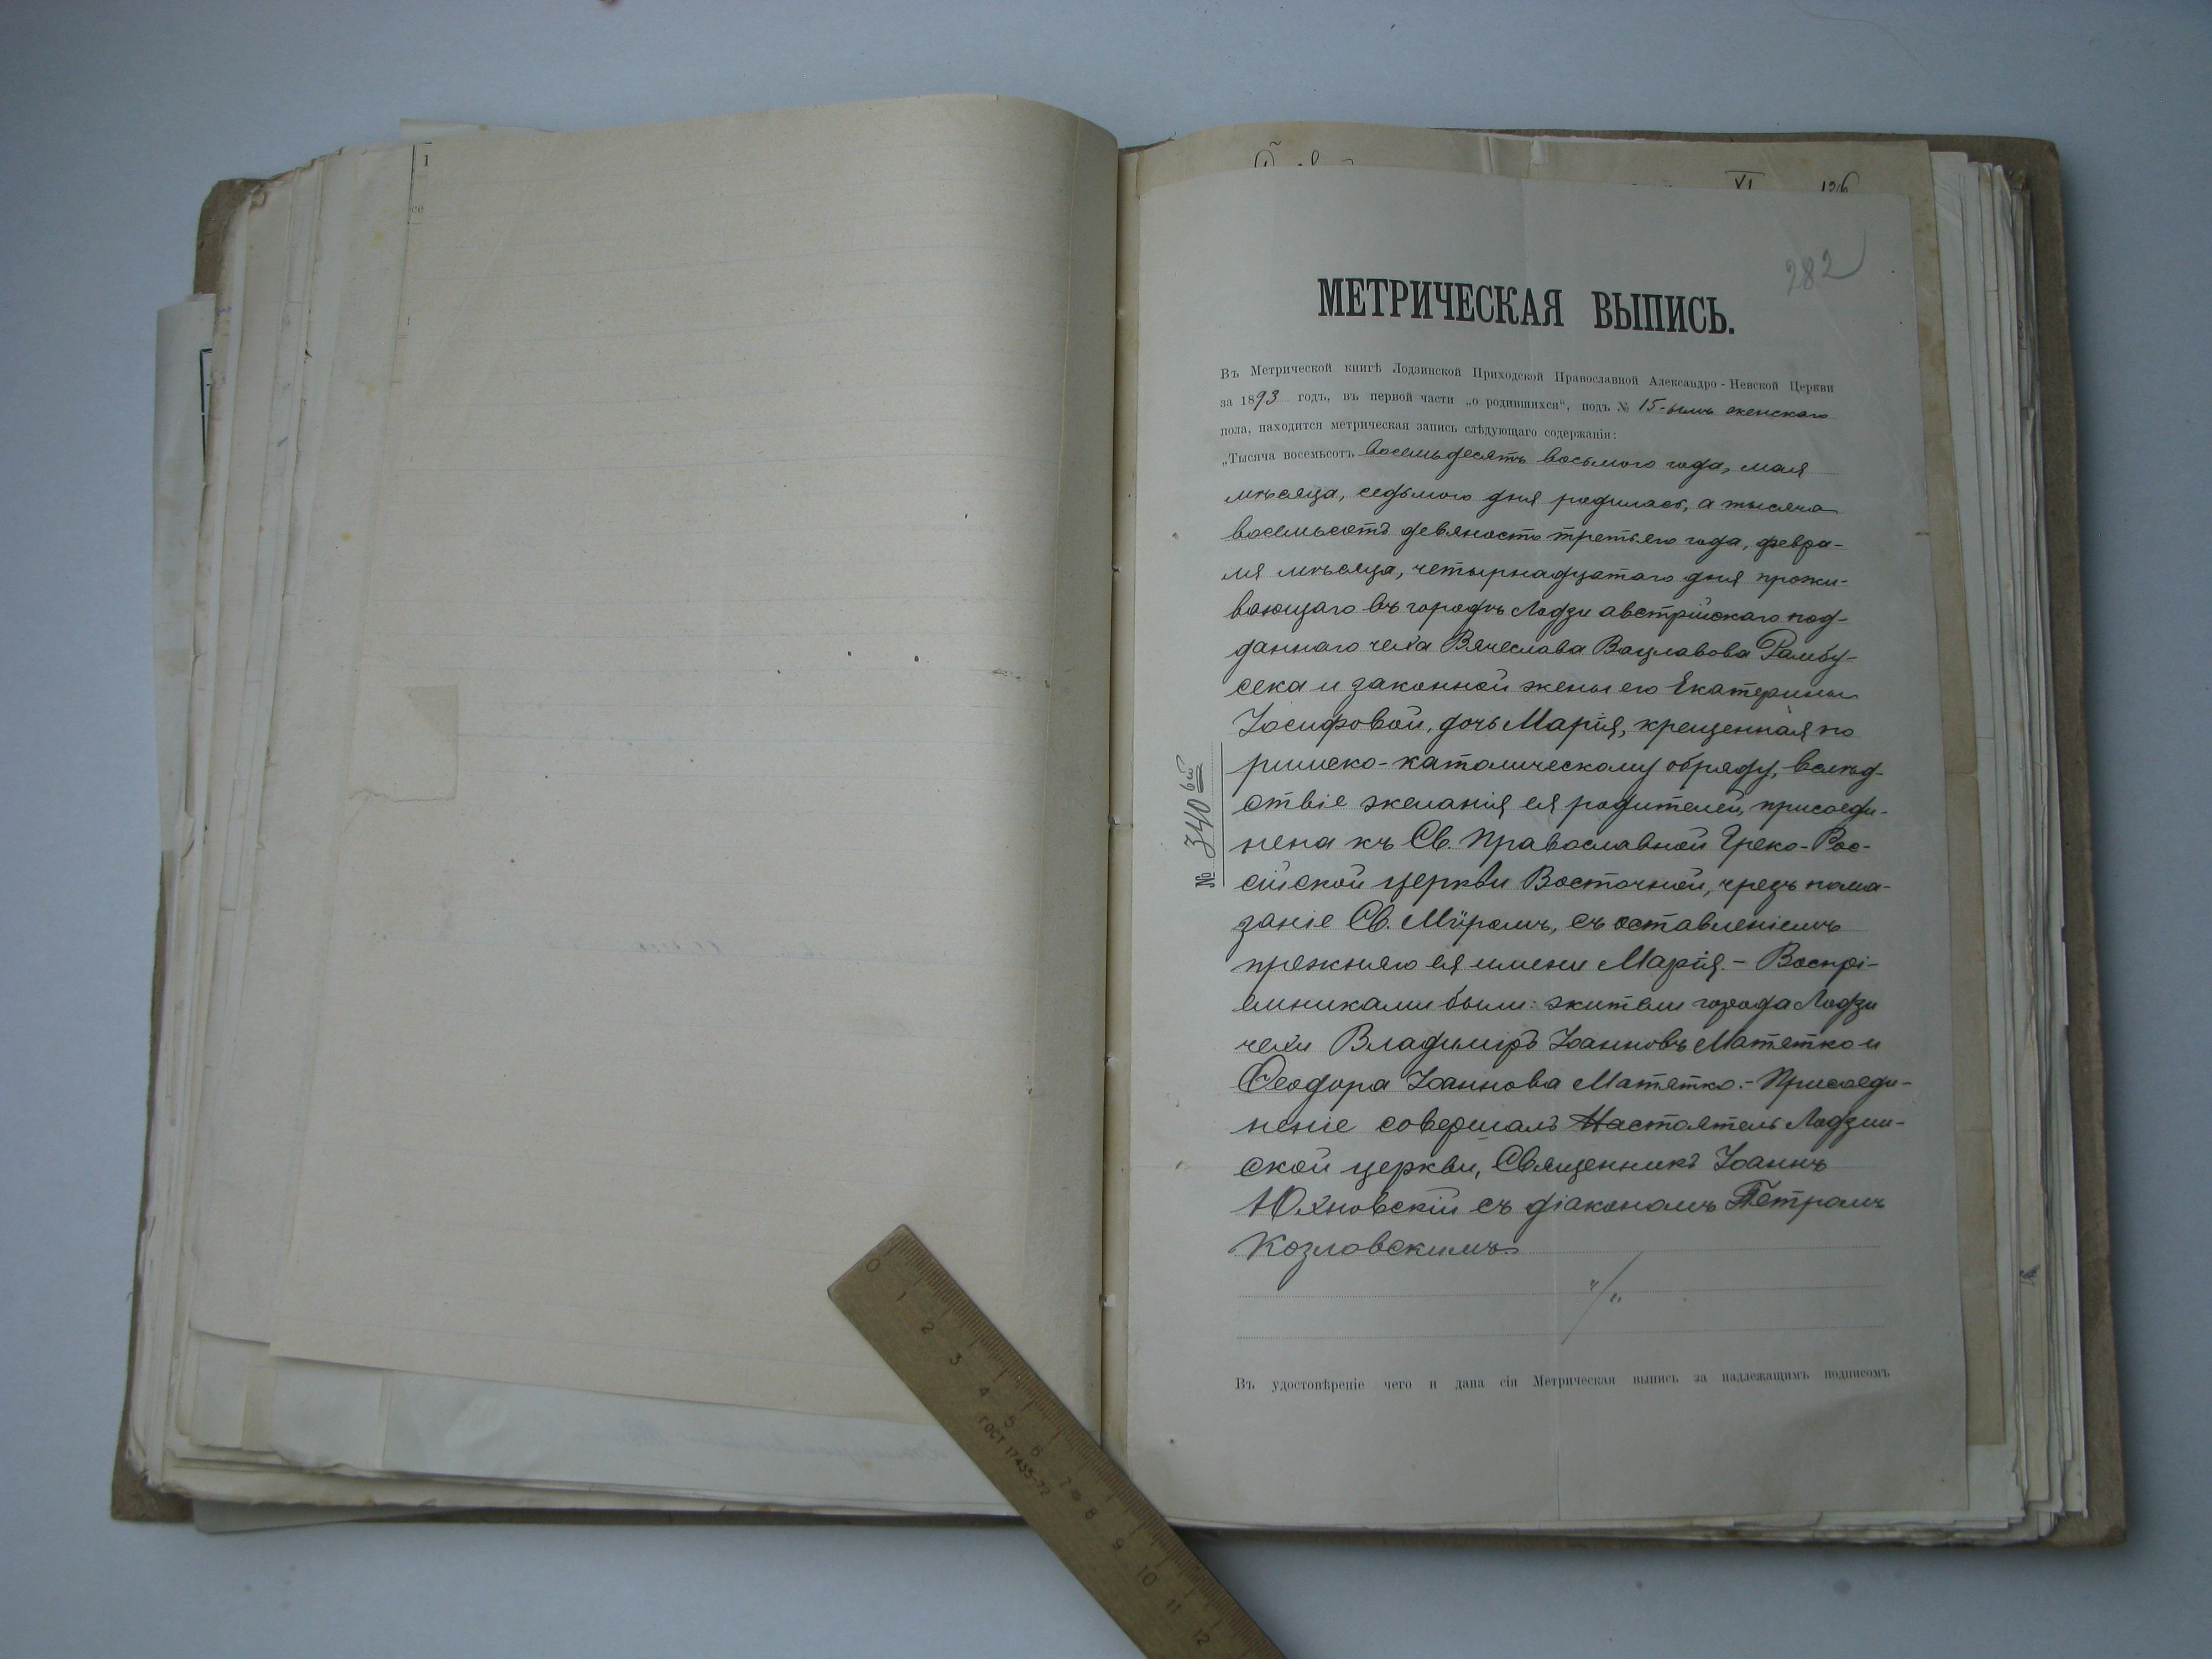 XI
282
МЕТРИЧЕСКАЯ ВЫПИСЬ.
Въ Метрической книгѣ Лодзинской Приходской Православной Александро-Невской Церкви
за 1893 годъ, въ первой части „о родившихся“, подъ № 15-ымъ женскаго
пола, находится метрическая запись слѣдующаго содержанія:
„Тысяча восемьсотъ восемьдесятъ восьмого года, мая
мѣсяца, седьмого дня родилась, а тысяча
восемьсотъ девяносто третьяго года, февра-
ля мѣсяца, четырнадцатаго дня прожи-
вающаго въ городѣ Лодзи австрійскаго под-
даннаго чеха Вячеслава Вацлавова Рамбу-
сека и законной жены его Екатерины
Іосифовой, дочь Марія, крещенная по
римско-католическому обряду, вслѣд-
ствіе желанія ея родителей, присоеди-
нена къ Св. Православной Греко-Рос-
сійской церкви Восточной, чрезъ пома-
заніе Св. Мѵромъ, съ оставленіемъ
прежняго ея имени Марія.- Воспрі-
емниками были: жители города Лодзи
чехи Владиміръ Іоанновъ Матятко и
Ѳеодора Іоаннова Матятко.- Присоеди-
неніе совершалъ Настоятель Лодзин-
ской церкви, Священникъ Іоаннъ
Юхновскій съ діакономъ Петромъ
Козловскимъ
№ 340 ый
Въ удостовѣреніе чего и дана сія Метрическая выпись за надлежащимъ подписомъ
0 1 2 3 4 5 6 7 8 9 10 11 12
ГОСТ 17435-72